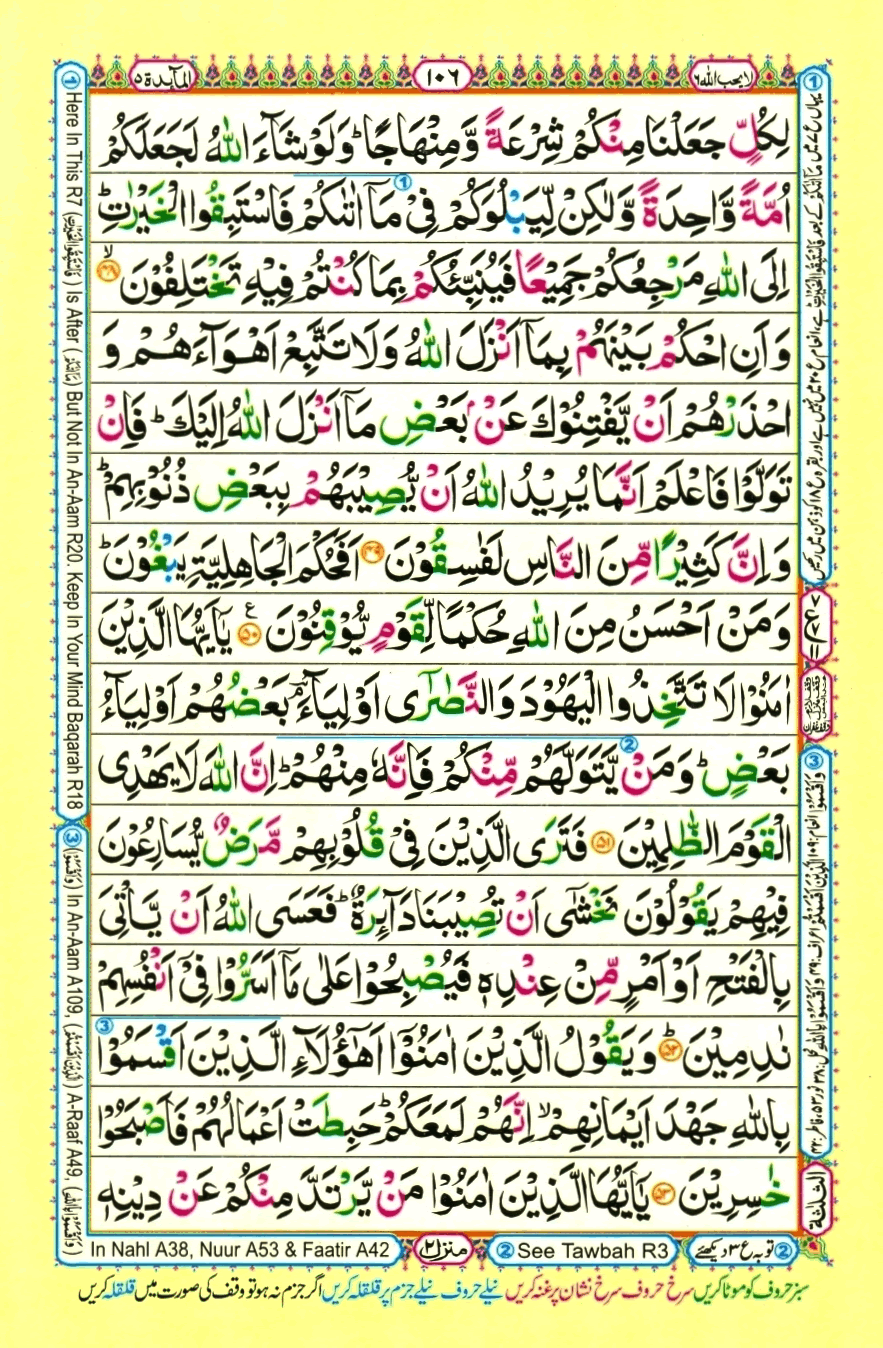 لا یحب الله ٦
١٠٦
المآىدة ٥
لِكُلٍّ جَعَلْنَا مِنْكُمْ شِرْعَةً وَّمِنْهَاجًا ؕ وَلَوْ شَآءَ اللّٰهُ لَجَعَلَكُمْ
اُمَّةً وَّاحِدَةً وَّلٰكِنْ لِّيَبْلُوَكُمْ فِىْ مَاۤ اٰتٰىكُمْ فَاسْتَبِقُوا الْخَيْرٰتِ ؕ
اِلَى اللّٰهِ مَرْجِعُكُمْ جَمِيْعًا فَيُنَبِّئُكُمْ بِمَا كُنْتُمْ فِيْهِ تَخْتَلِفُوْنَ ۙ ﴿۴۸﴾
وَاَنِ احْكُمْ بَيْنَهُمْ بِمَاۤ اَنْزَلَ اللّٰهُ وَلَا تَتَّبِعْ اَهْوَآءَهُمْ وَ
احْذَرْهُمْ اَنْ يَّفْتِنُوْكَ عَنْۢ بَعْضِ مَاۤ اَنْزَلَ اللّٰهُ اِلَيْكَ ؕ فَاِنْ
تَوَلَّوْا فَاعْلَمْ اَنَّمَا يُرِيْدُ اللّٰهُ اَنْ يُّصِيْبَهُمْ بِبَعْضِ ذُنُوْبِهِمْ ؕ
وَاِنَّ كَثِيْرًا مِّنَ النَّاسِ لَفٰسِقُوْنَ ﴿۴۹﴾ اَفَحُكْمَ الْجَاهِلِيَّةِ يَبْغُوْنَ ؕ
وَمَنْ اَحْسَنُ مِنَ اللّٰهِ حُكْمًا لِّقَوْمٍ يُّوْقِنُوْنَ ﴿۵۰﴾ يٰۤاَيُّهَا الَّذِيْنَ
اٰمَنُوْا لَا تَتَّخِذُوا الْيَهُوْدَ وَالنَّصٰرٰٓى اَوْلِيَآءَ ۘ بَعْضُهُمْ اَوْلِيَآءُ
بَعْضٍ ؕ وَمَنْ يَّتَوَلَّهُمْ مِّنْكُمْ فَاِنَّهٗ مِنْهُمْ ؕ اِنَّ اللّٰهَ لَا يَهْدِى
الْقَوْمَ الظّٰلِمِيْنَ ﴿۵۱﴾ فَتَرَى الَّذِيْنَ فِىْ قُلُوْبِهِمْ مَّرَضٌ يُّسَارِعُوْنَ
فِيْهِمْ يَقُوْلُوْنَ نَخْشٰٓى اَنْ تُصِيْبَنَا دَآئِرَةٌ ؕ فَعَسَى اللّٰهُ اَنْ يَّاْتِىَ
بِالْفَتْحِ اَوْ اَمْرٍ مِّنْ عِنْدِهٖ فَيُصْبِحُوْا عَلٰى مَاۤ اَسَرُّوْا فِىْۤ اَنْفُسِهِمْ
نٰدِمِيْنَ ؕ ﴿۵۲﴾ وَيَقُوْلُ الَّذِيْنَ اٰمَنُوْۤا اَهٰٓؤُلَآءِ الَّذِيْنَ اَقْسَمُوْا
بِاللّٰهِ جَهْدَ اَيْمَانِهِمْ ۙ اِنَّهُمْ لَمَعَكُمْ ؕ حَبِطَتْ اَعْمَالُهُمْ فَاَصْبَحُوْا
خٰسِرِيْنَ ﴿۵۳﴾ يٰۤاَيُّهَا الَّذِيْنَ اٰمَنُوْا مَنْ يَّرْتَدَّ مِنْكُمْ عَنْ دِيْنِهٖ
الثلثة
① Here In This R7 (فَاسْتَبِقُوا الْخَيْرٰتِ) Is After ( مَا اٰتٰىكُمْ ) But Not In An-Aam R20. Keep In Your Mind Baqarah R18
③ (وَاَقْسَمُوْا) In An-Aam A109, (الَّذِيْنَ اَقْسَمْتُمْ) A-Raaf A49, (وَاَقْسَمُوْا بِاللّٰهِ)
In Nahl A38, Nuur A53 & Faatir A42
منزل ٢
② See Tawbah R3
② توبہ ع ۳ دیکھئے
سبز حروف کو موٹا کریں سرخ حروف سرخ نشان پر غنہ کریں نیلے حروف نیلے جزم پر قلقلہ کریں اگر جزم نہ ہو تو وقف کی صورت میں قلقلہ کریں